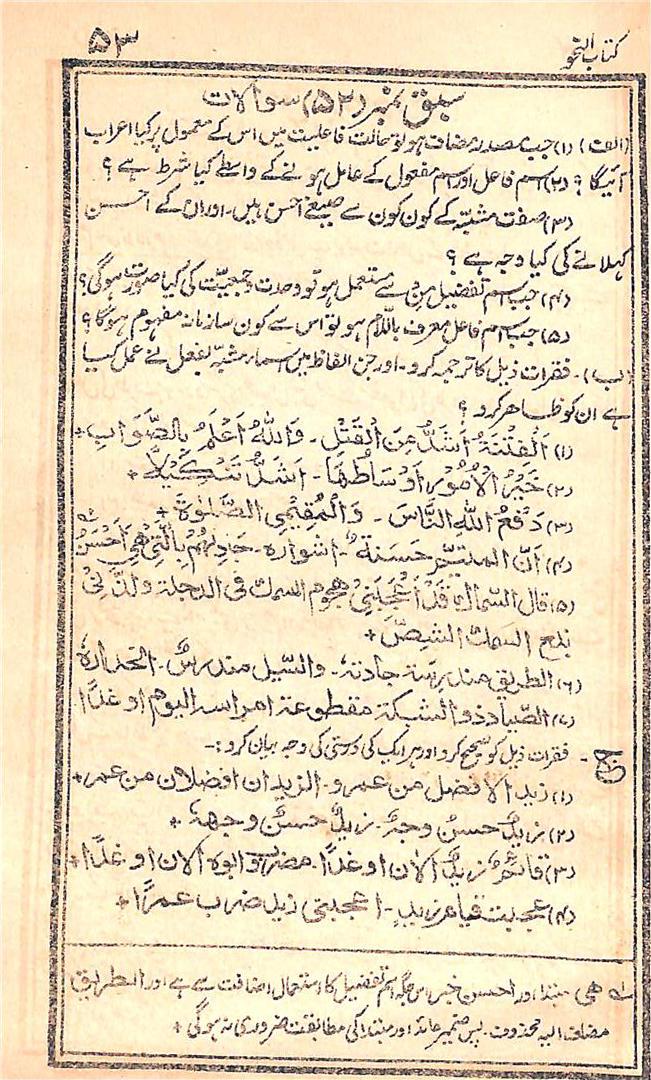 ۵۳
کتاب النحو
سبق نمبر (۵۲) سوالات
(الف) (۱) جب مصدر مضاف ہو تو حالت فاعلیت میں اس کے معمول پر کیا اعراب
آئیگا ؟ (۲) اسم فاعل اور اسم مفعول کے عامل ہونے کے واسطے کیا شرط ہے ؟
(۳) صفت مشبّہ کے کون کون سے صیغے احسن ہیں۔ اور ان کے احسن
کہلانے کی کیا وجہ ہے ؟
(۴) جب اسم تفضیل مِن سے مستعمل ہو تو وحدت و جمعیّت کی کیا صورت ہوگی؟
(۵) جب اسم فاعل معرف باللّام ہو تو اس سے کون سا زمانہ مفہوم ہوگا ؟
(ب)۔ فقرات ذیل کا ترجمہ کرو۔ اور جن الفاظ میں اسماء مشبّہ بفعل نے عمل کیا
ہے ان کو ظاہر کرو ؟
(۱) اَلْفِتْنَةُ اَشَدُّ مِنَ الْقَتْلِ۔ وَاللّٰهُ اَعْلَمُ بِالصَّوَابِ+
(۲) خَيْرُ الْاُمُوْرِ اَوْسَاطُهَا۔ اَشَدُّ تَنْكِيْلًا+
(۳) دَفْعُ اللّٰهِ النَّاسَ۔ وَالْمُقِيْمِي الصَّلٰوةَ+
(۴) اَنّ حَسَنَةٌ۔ اشواره۔ جَادِلْهُمْ بِالَّتِيْ هِيَ اَحْسَنُ ؎
(۵) قال السّماك قَدْ اَعْجَبَنِيْ هجوم السمك فى الدجلة ولذّنى
بلع السمك الشِصّ+
(۶) الطريق مندرسة جادتهٗ۔ والسّيل مندرسٌ
(۷) الصّياد ذو الشبكة مقطوعة امراسه اليوم او غدًا
(ج)۔ فقرات ذیل کو صحیح کرو اور ہر ایک کی درستی کی وجہ بیان کرو :۔
(۱) زيد الافضل من عمرو۔ الزيدان افضلان من عمر+
(۲) زيدٌ حسنٌ وجهٌ۔ زيدٌ حسنٌ وجههٗ+
(۳) قائمٌ زيدٌ الان او غدًا۔ مضرب ابوه الان او غدًا+
(۴) عجبت قيام زيدٍ۔ اعجبنى زيد ضرب عمرًا+
؎ هى مبتدا اور احسن خبر اس جگہ اسم تفضیل کا استعمال اضافت سے ہے اور الطرايق
مضاف الیہ محذوف۔ پس ضمیر عائد اور مبتدا کی مطابقت ضروری نہ ہوگی+